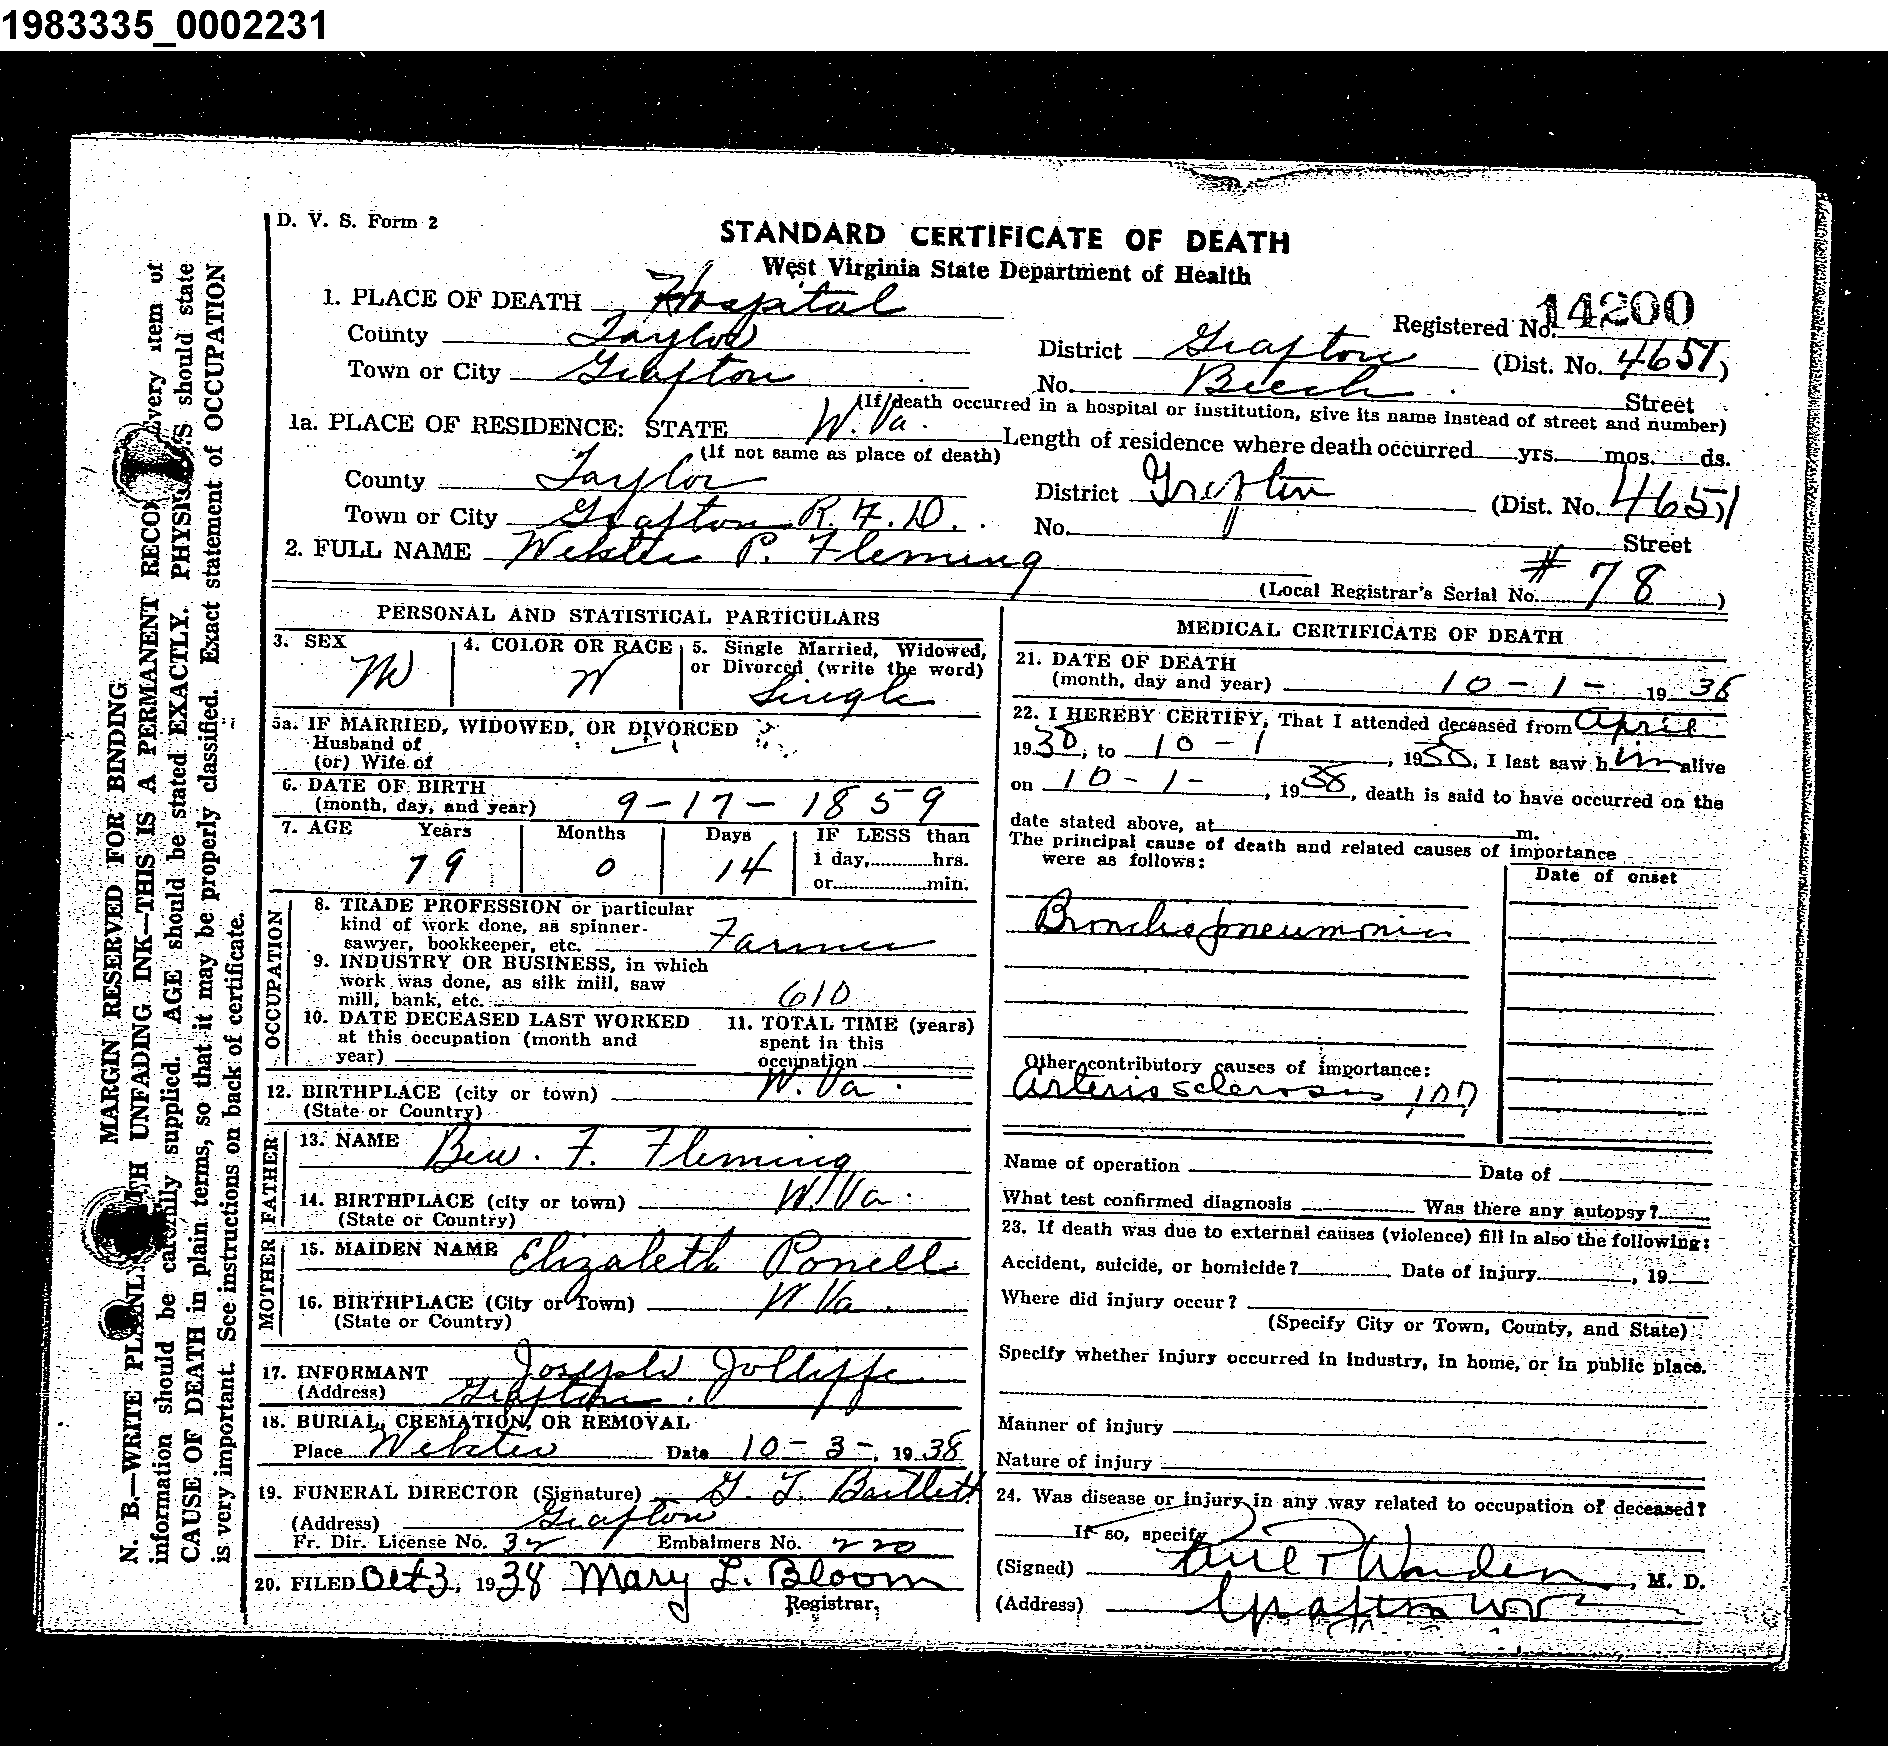 1983335_0002231
D. V. S. Form 2
STANDARD CERTIFICATE OF DEATH
West Virginia State Department of Health
1. PLACE OF DEATH Hospital
Registered No. 14200
County Taylor
District Grafton (Dist. No. 4651)
Town or City Grafton
No. Beech Street
(If death occurred in a hospital or institution, give its name instead of street and number)
1a. PLACE OF RESIDENCE: STATE W. Va.
(If not same as place of death)
Length of residence where death occurred yrs. mos. ds.
County Taylor
District Grafton (Dist. No. 4651)
Town or City Grafton R. F. D.
No. Street
2. FULL NAME Webster P. Fleming
(Local Registrar's Serial No. # 78)
PERSONAL AND STATISTICAL PARTICULARS
3. SEX M
4. COLOR OR RACE W
5. Single Married, Widowed, or Divorced (write the word) Single
5a. IF MARRIED, WIDOWED, OR DIVORCED
Husband of
(or) Wife of
6. DATE OF BIRTH
(month, day, and year) 9-17-1859
7. AGE Years Months Days IF LESS than
79 0 14 1 day, hrs.
or min.
OCCUPATION
8. TRADE PROFESSION or particular
kind of work done, as spinner-
sawyer, bookkeeper, etc. Farmer
9. INDUSTRY OR BUSINESS, in which
work was done, as silk mill, saw
mill, bank, etc. 610
10. DATE DECEASED LAST WORKED
at this occupation (month and
year)
11. TOTAL TIME (years)
spent in this
occupation
12. BIRTHPLACE (city or town) W. Va.
(State or Country)
FATHER
13. NAME Ben. F. Fleming
14. BIRTHPLACE (city or town) W. Va.
(State or Country)
MOTHER
15. MAIDEN NAME Elizabeth Powell
16. BIRTHPLACE (City or Town) W Va.
(State or Country)
17. INFORMANT Joseph Jolliffe
(Address) Grafton.
18. BURIAL, CREMATION, OR REMOVAL
Place Webster Date 10-3-, 1938
19. FUNERAL DIRECTOR (Signature) G. T. Bartlett
(Address) Grafton
Fr. Dir. License No. 32 Embalmers No. 220
20. FILED Oct 3, 1938 Mary L. Bloom
Registrar.
MEDICAL CERTIFICATE OF DEATH
21. DATE OF DEATH
(month, day and year) 10-1- 1938
22. I HEREBY CERTIFY, That I attended deceased from April
1938, to 10-1, 1938, I last saw him alive
on 10-1-, 1938, death is said to have occurred on the
date stated above, at m.
The principal cause of death and related causes of importance
were as follows:
Date of onset
Bronchopneumonia
Other contributory causes of importance:
Arteriosclerosis 107
Name of operation Date of
What test confirmed diagnosis Was there any autopsy?
23. If death was due to external causes (violence) fill in also the following:
Accident, suicide, or homicide? Date of injury , 19
Where did injury occur?
(Specify City or Town, County, and State)
Specify whether injury occurred in industry, in home, or in public place.
Manner of injury
Nature of injury
24. Was disease or injury in any way related to occupation of deceased?
If so, specify
(Signed) Warden, M. D.
(Address) Grafton W V
MARGIN RESERVED FOR BINDING
N. B.—WRITE PLAINLY UNFADING INK—THIS IS A PERMANENT RECORD Every item of
information should be carefully supplied. AGE should be stated EXACTLY. PHYSICIANS should state
CAUSE OF DEATH in plain terms, so that it may be properly classified. Exact statement of OCCUPATION
is very important. See instructions on back of certificate.